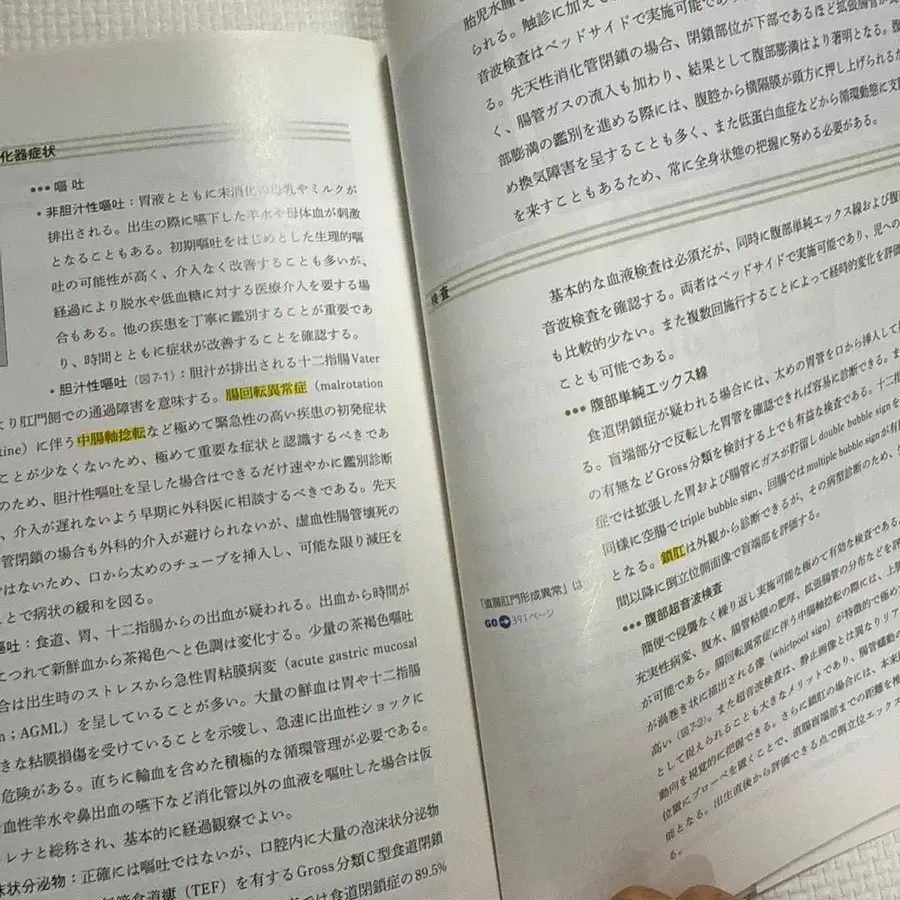 化器症状
●●● 嘔 吐
・非胆汁性嘔吐：胃液とともに未消化の母乳やミルクが
排出される。出生の際に嚥下した羊水や母体血が刺激
となることもある。初期嘔吐をはじめとした生理的嘔
吐の可能性が高く、介入なく改善することも多いが、
経過により脱水や低血糖に対する医療介入を要する場
合もある。他の疾患を丁寧に鑑別することが重要であ
り、時間とともに症状が改善することを確認する。
・胆汁性嘔吐（図7-1）：胆汁が排出される十二指腸Vater
より肛門側での通過障害を意味する。腸回転異常症（malrotation
tine）に伴う中腸軸捻転など極めて緊急性の高い疾患の初発症状
ことが少なくないため、極めて重要な症状と認識するべきであ
のため、胆汁性嘔吐を呈した場合はできるだけ速やかに鑑別診断
、介入が遅れないよう早期に外科医に相談するべきである。先天
管閉鎖の場合も外科的介入が避けられないが、虚血性腸管壊死の
ではないため、口から太めのチューブを挿入し、可能な限り減圧を
ことで病状の緩和を図る。
嘔吐：食道、胃、十二指腸からの出血が疑われる。出血から時間が
につれて新鮮血から茶褐色へと色調は変化する。少量の茶褐色嘔吐
合は出生時のストレスから急性胃粘膜病変（acute gastric mucosal
n；AGML）を呈していることが多い。大量の鮮血は胃や十二指腸
きな粘膜損傷を受けていることを示唆し、急速に出血性ショックに
危険がある。直ちに輸血を含めた積極的な循環管理が必要である。
血性羊水や鼻出血の嚥下など消化管以外の血液を嘔吐した場合は仮
レナと総称され、基本的に経過観察でよい。
沫状分泌物：正確には嘔吐ではないが、口腔内に大量の泡沫状分泌物
気管食道瘻（TEF）を有するGross分類C型食道閉鎖
では食道閉鎖症の89.5%
胎児水腫
られる。触診に加え
音波検査はベッドサイドで実施可能であ
る。先天性消化管閉鎖の場合、閉鎖部位が下部であるほど拡張腸管が
く、腸管ガスの流入も加わり、結果として腹部膨満はより著明となる。腹
部膨満の鑑別を進める際には、腹腔から横隔膜が頭方に押し上げられるた
め換気障害を呈することも多く、また低蛋白血症などから循環動態に支障
を来すこともあるため、常に全身状態の把握に努める必要がある。
検査
基本的な血液検査は必須だが、同時に腹部単純エックス線および腹
音波検査を確認する。両者はベッドサイドで実施可能であり、児への
も比較的少ない。また複数回施行することによって経時的変化を評価
ことも可能である。
●●● 腹部単純エックス線
食道閉鎖症が疑われる場合には、太めの胃管を口から挿入して
る。盲端部分で反転した胃管を確認できれば容易に診断できる。ま
の有無などGross分類を検討する上でも有益な検査である。十二指
症では拡張した胃および腸管にガスが貯留しdouble bubble signを
同様に空腸でtriple bubble sign、回腸ではmultiple bubble signが有
となる。鎖肛は外観から診断できるが、その病型診断のため、
間以降に倒立位側面像で盲端部を評価する。
「直腸肛門形成異常」は
GO➡391ページ
●●● 腹部超音波検査
簡便で侵襲なく繰り返し実施可能な極めて有効な検査である
充実性病変、腹水、腸管粘膜の肥厚、拡張腸管の分布などを評
が可能である。腸回転異常症に伴う中腸軸捻転の際には、上腸
が渦巻き状に描出される像（whirlpool sign）が特徴的で極め
高い（図7-2）。また超音波検査は、静止画像とは異なりリア
として捉えられることも大きなメリットであり、腸管蠕動
動向を視覚的に把握できる。さらに鎖肛の場合には、本来
位置にプローベを置くことで、直腸盲端部までの距離を推
能となる。出生直後から評価できる点で倒立位エックス
る。